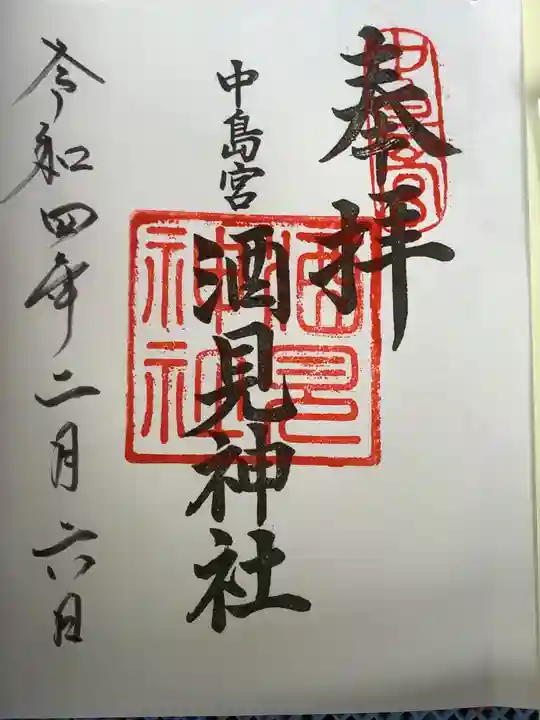 奉拝
中島宮
酒見神社
令和四年二月六日
中島宮
酒見神社